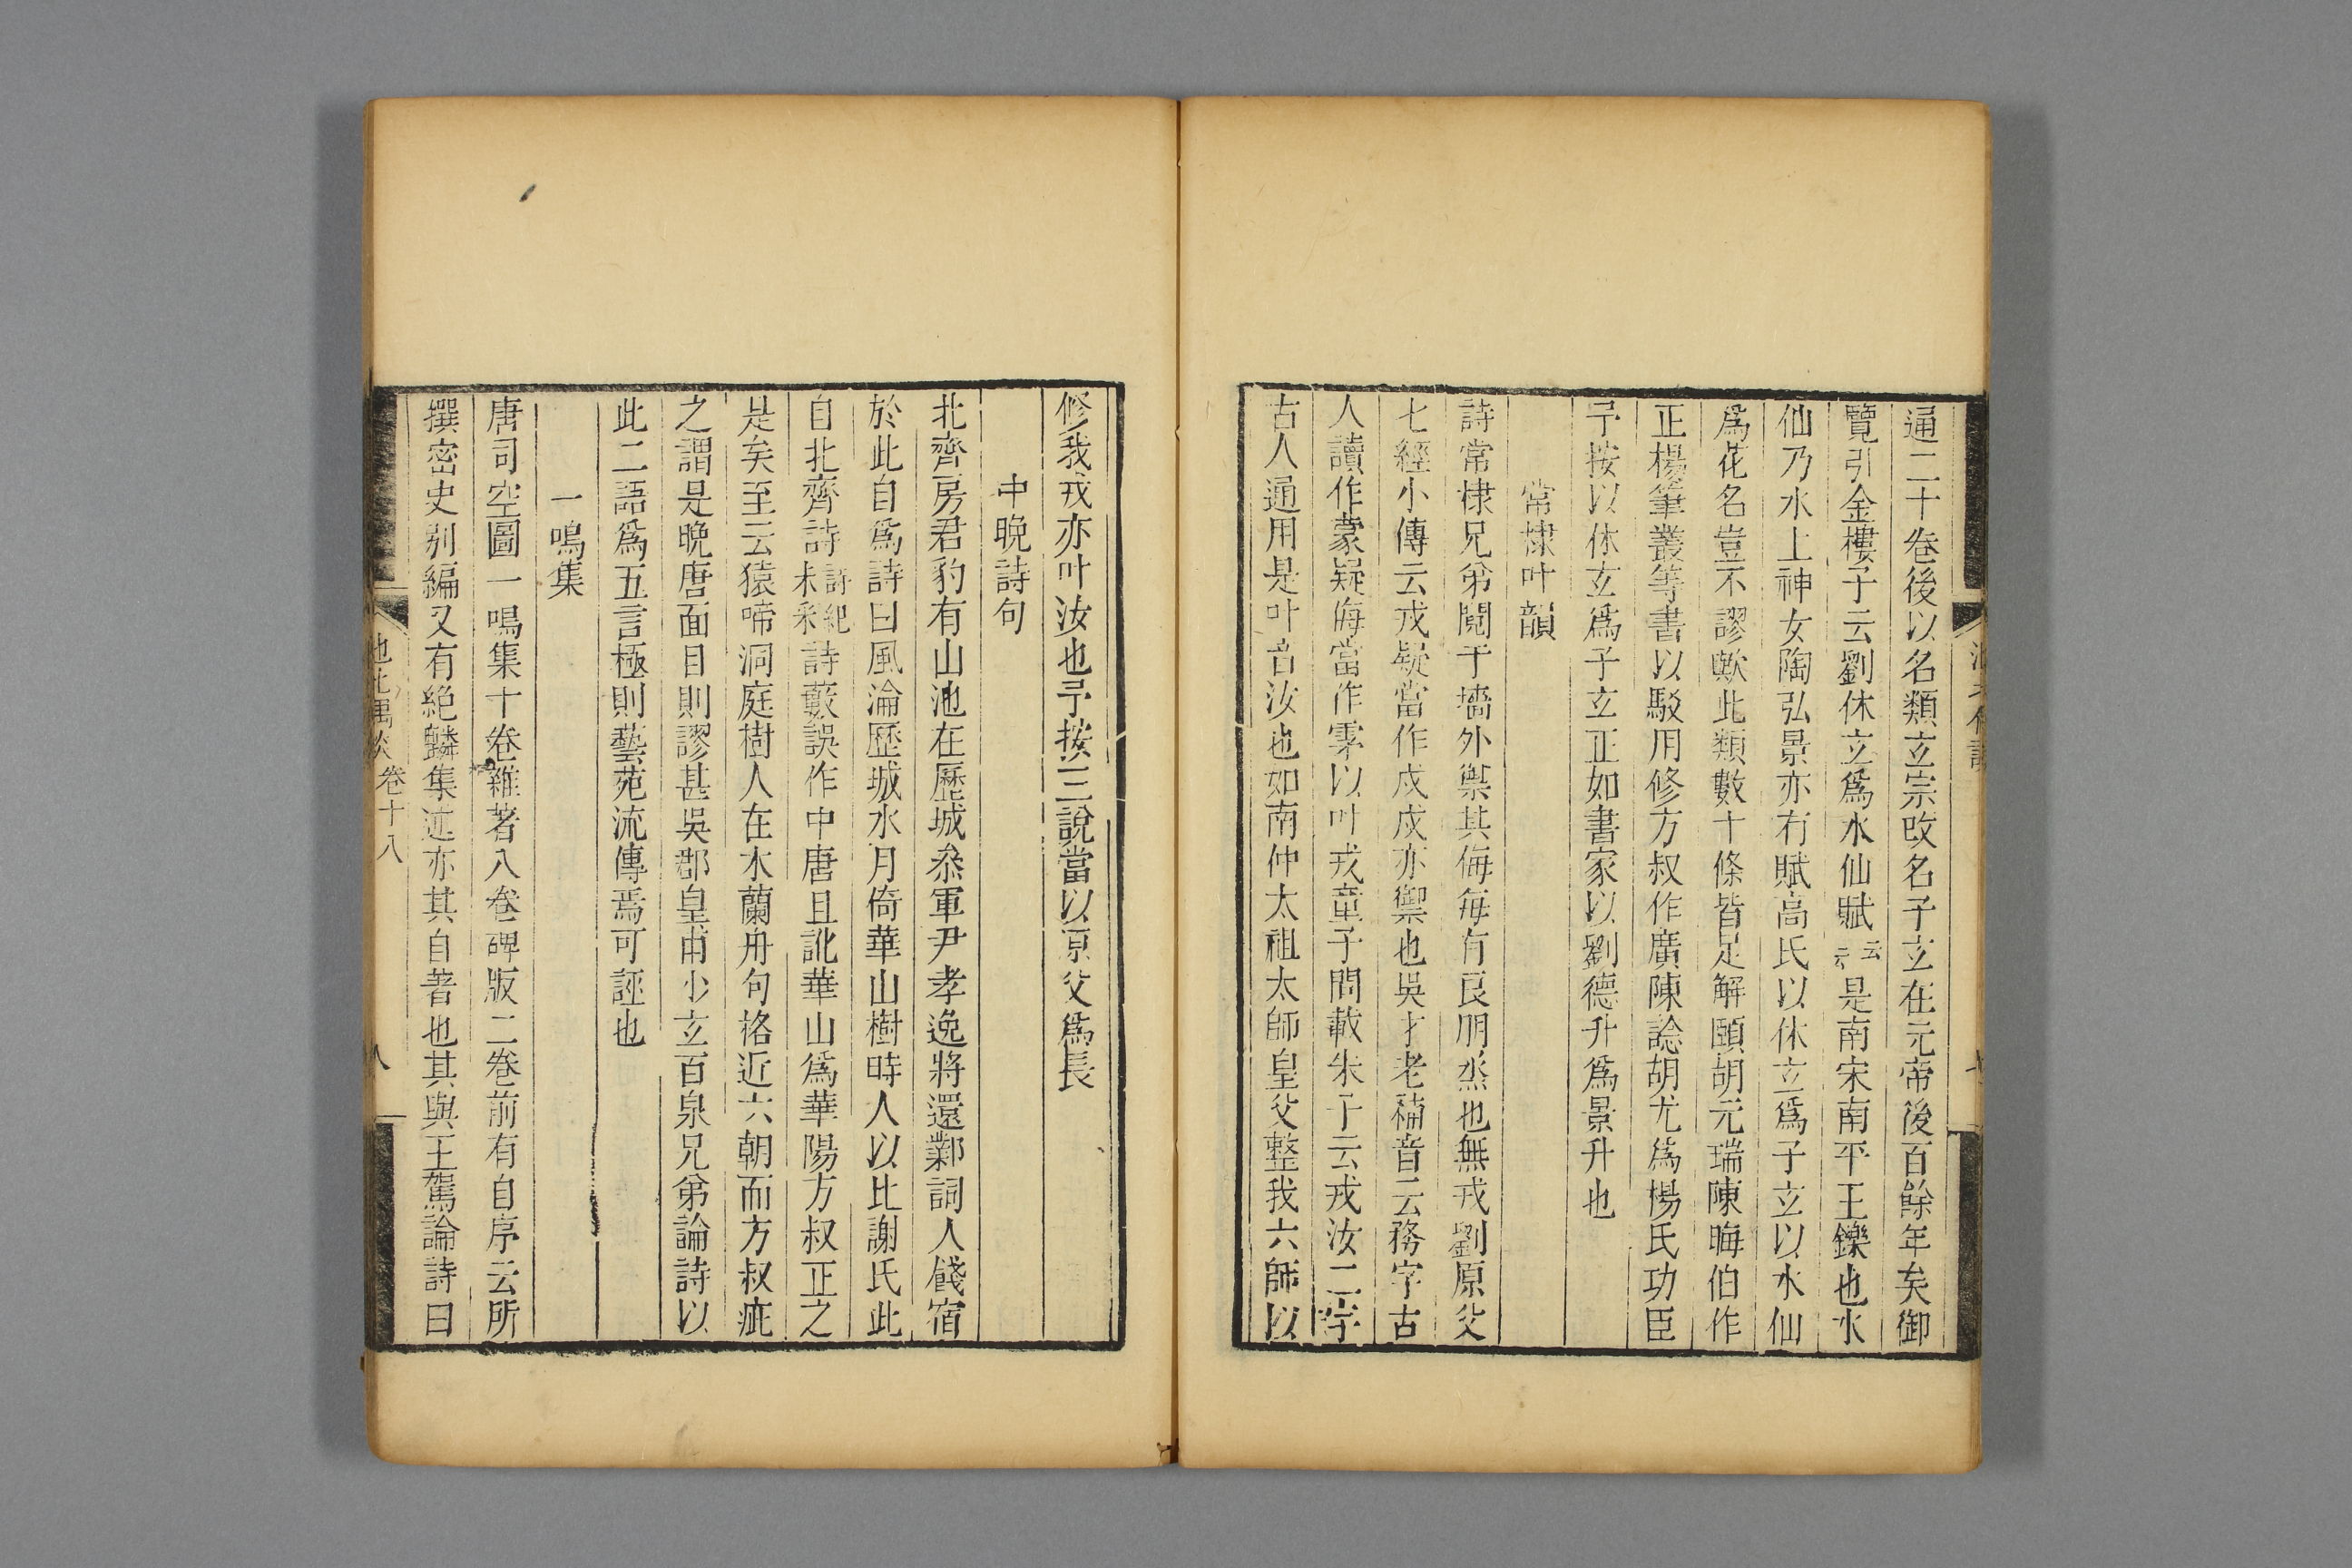 通二十卷後以名類玄宗改名子玄在元帝後百餘年矣御
覽引金樓子云劉休玄爲水仙賦云云是南宋南平王鑠也水
仙乃水上神女陶弘景亦有賦高氏以休玄爲子玄以水仙
爲花名豈不謬歟此類數十條皆足解頤胡元瑞陳晦伯作
正楊筆叢等書以駁用修方叔作廣陳諗胡尤爲楊氏功臣
予按以休玄爲子玄正如書家以劉德升爲景升也
常棣叶韻
詩常棣兄弟鬩于墻外禦其侮每有良朋烝也無戎劉原父
七經小傳云戎疑當作戍戍亦禦也吳才老補音云務字古
人讀作蒙疑侮當作雺以叶戎童子問載朱子云戎汝二字
古人通用是叶音汝也如南仲太祖太師皇父整我六師以
修我戎亦叶汝也予按三說當以原父爲長
中晩詩句
北齊房君豹有山池在歷城叅軍尹孝逸將還鄴詞人餞宿
於此自爲詩曰風淪歷城水月倚華山樹時人以比謝氏此
自北齊詩詩紀未釆詩藪誤作中唐且訛華山爲華陽方叔正之
是矣至云猿啼洞庭樹人在木蘭舟句格近六朝而方叔疵
之謂是晩唐面目則謬甚吳郡皇甫少玄百泉兄弟論詩以
此二語爲五言極則藝苑流傳焉可誣也
一鳴集
唐司空圖一鳴集十卷雜著八卷碑版二卷前有自序云所
撰密史别編又有絶麟集述亦其自著也其與王駕論詩曰
池北偶談 卷十八 八